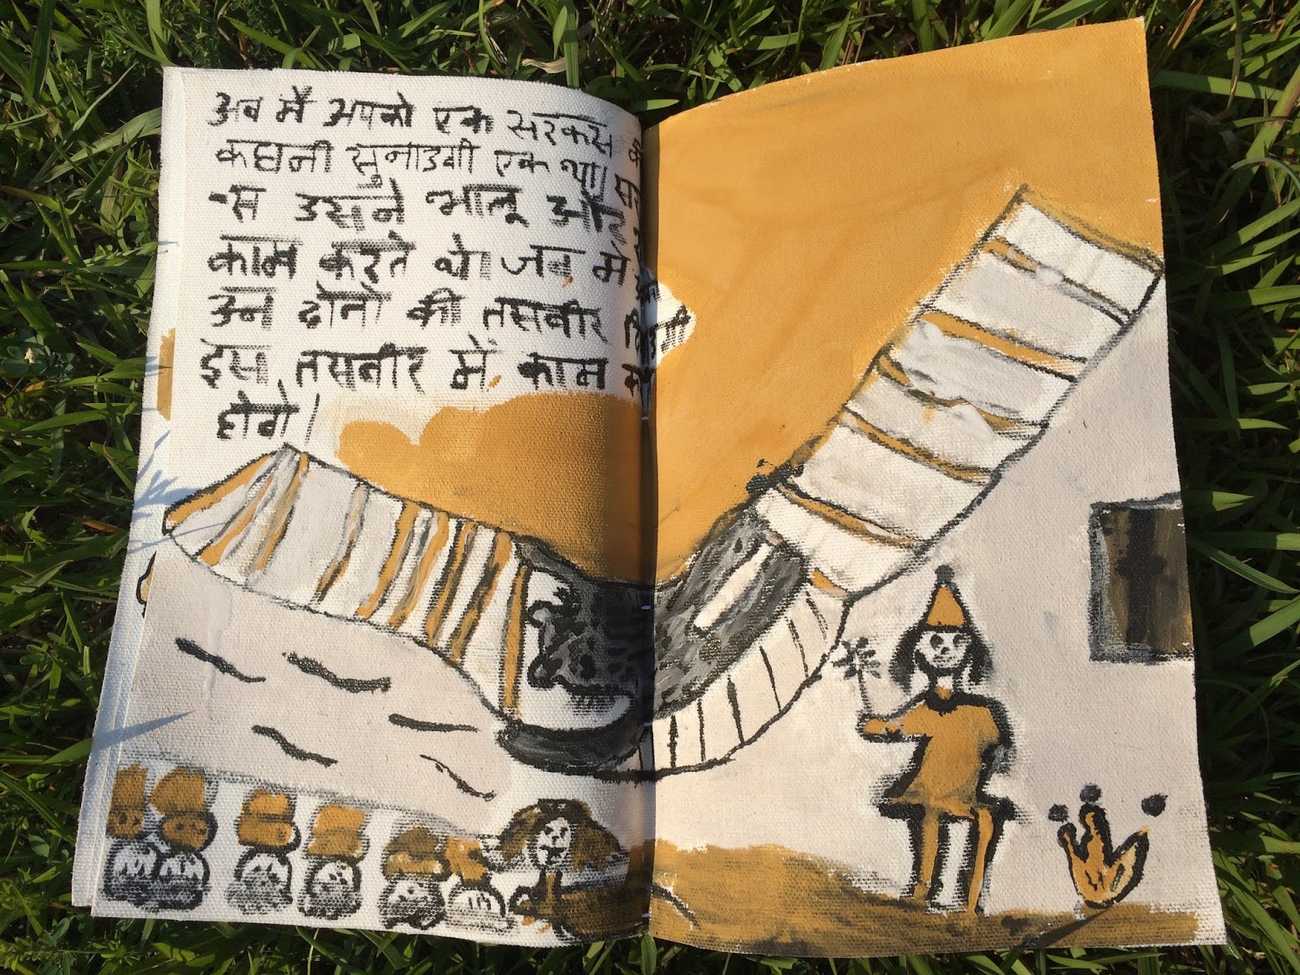 अब मैं अपको एक सरकस
कहानी सुनाउगी एक था।
स उसमे भालू और
काम करते थे। जब मे
उन दोनो की तसवीर
इस तसवीर में काम
होवो।